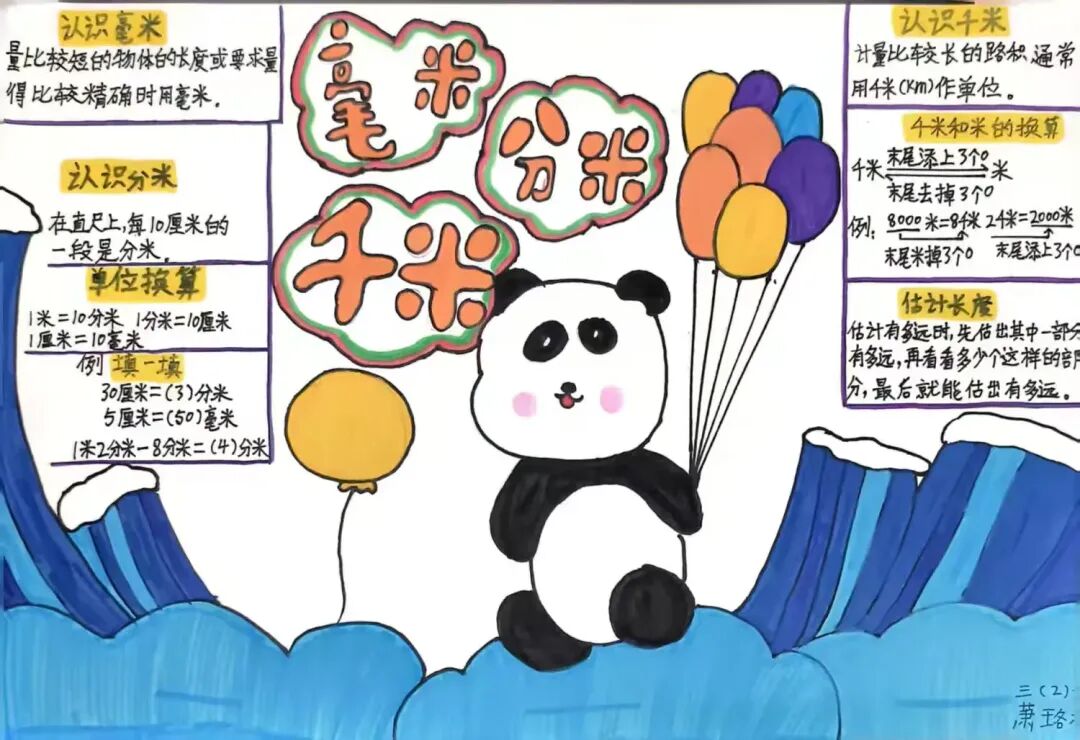 认识毫米
量比较短的物体的长度或要求量
得比较精确时用毫米。
认识分米
在直尺上,每10厘米的
一段是分米。
单位换算
1米=10分米 1分米=10厘米
1厘米=10毫米
例 填一填
30厘米=(3)分米
5厘米=(50)毫米
1米2分米-8分米=(4)分米
毫米
分米
千米
认识千米
计量比较长的路积,通常
用千米(km)作单位。
千米和米的换算
末尾添上3个0
千米 米
末尾去掉3个0
例: 8000米=8千米 2千米=2000米
末尾米掉3个0 末尾添上3个0
估计长度
估计有多远时,先估出其中一部分
有多远,再看看多少个这样的部
分,最后就能估出有多远。
三(2)
萧珞